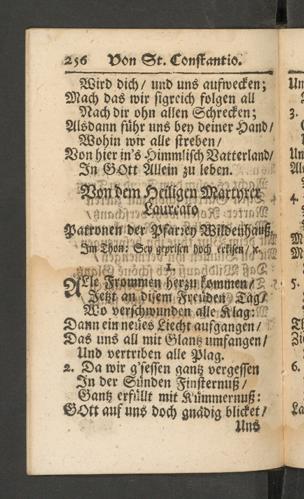 256 Von St. Constantio.
Wird dich / und uns aufwecken;
Mach das wir sigreich folgen all
Nach dir ohn allen Schrecken;
Alsdann führ uns bey deiner Hand /
Wohin wir alle streben /
Von hier in's Himmlisch Vatterland /
In GOtt Allein zu leben.
Von dem Heiligen Martyrer
Laureato
Patronen der Pfarrey Wildenhauß.
Im Thon: Sey geprisen hoch erhsen / rc.
1.
Alle Frommen herzu kommen /
Jetzt an disem Freuden Tag /
Wo verschwunden alle Klag:
Dann ein neües Liecht aufgangen /
Das uns all mit Glantz umfangen /
Und vertriben alle Plag.
2. Da wir g'sessen gantz vergessen
In der Sünden Finsternuß /
Gantz erfüllt mit Kümmernuß:
GOtt auf uns doch gnädig blicket /
Uns